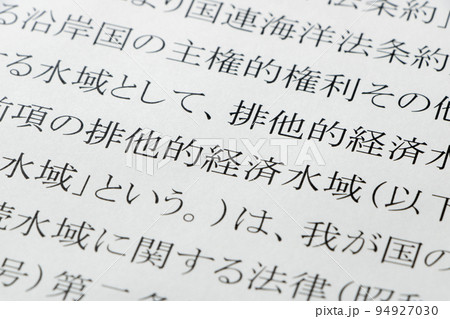 法条約」
より国連海洋法条約
る沿岸国の主権的権利その他
する水域として、排他的経済水
前項の排他的経済水域(以下
水域」という。)は、我が国の
続水域に関する法律(昭和
号)第二条
PIXTA
pixta.jp - 94927030